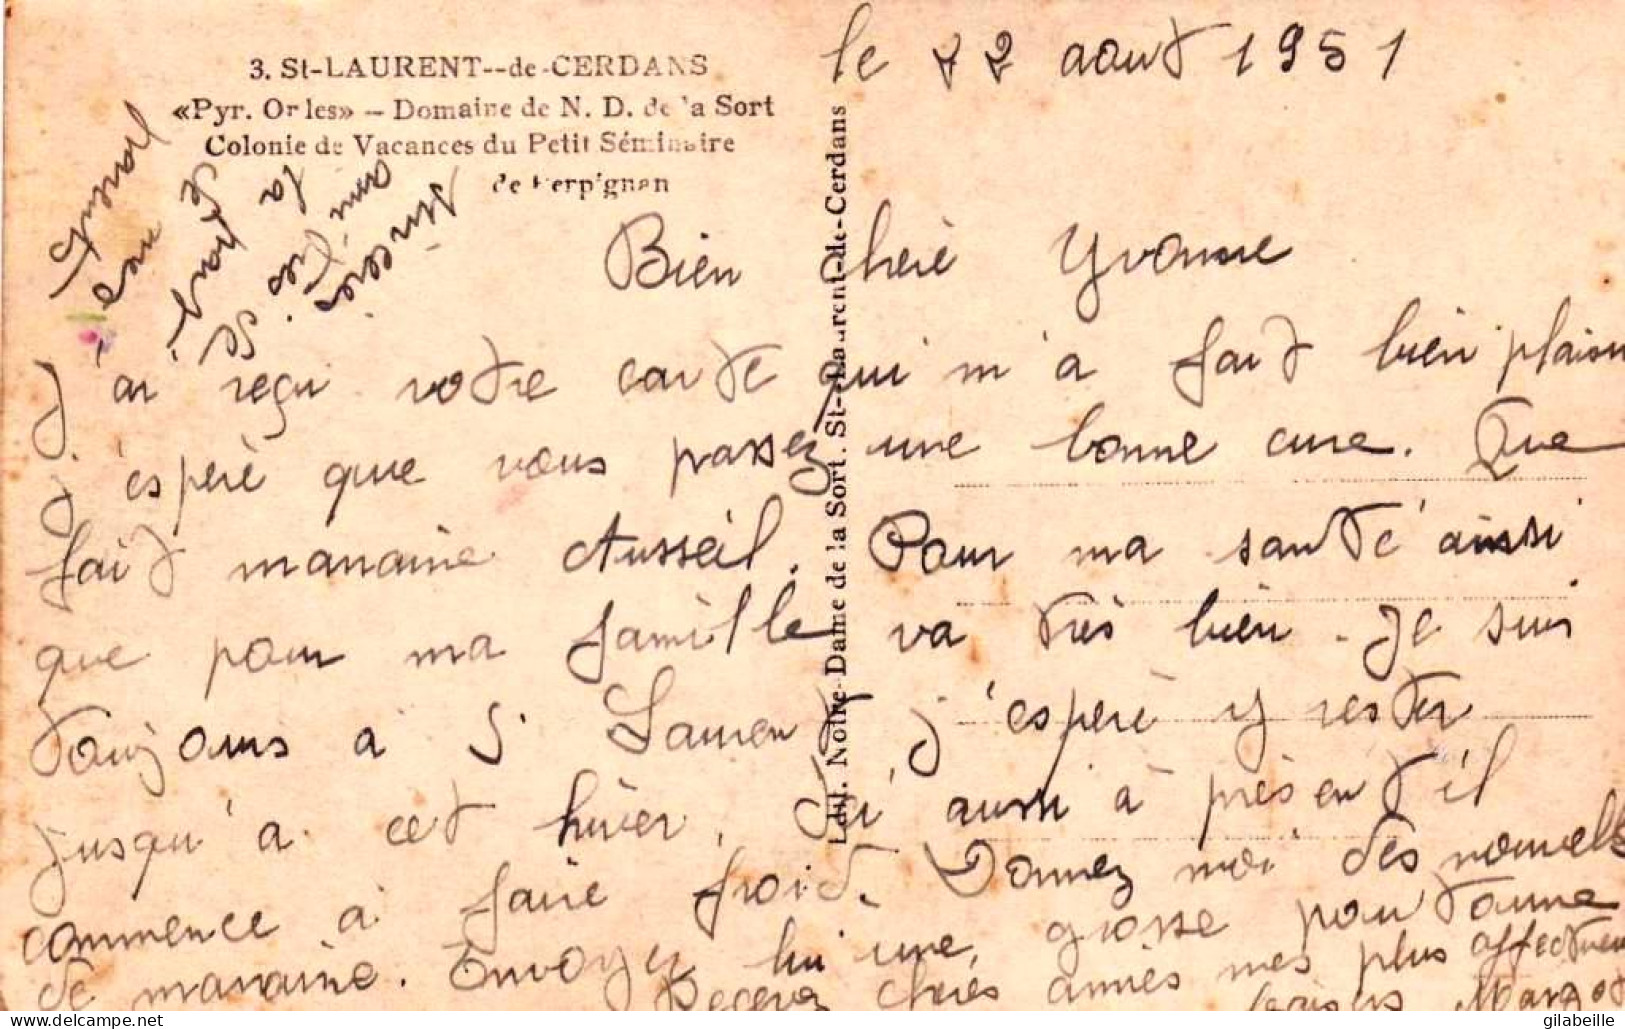 3. St-LAURENT--de-CERDANS
«Pyr. Or les» – Domaine de N. D. de la Sort
Colonie de Vacances du Petit Séminaire
de Perpignan
Edit. Notre-Dame de la Sort. St-Laurent-de-Cerdans
le 22 aout 1951
Bien chere Yvonne
J'ai reçu votre carte qui m'a fait bien plaisir
j'espere que vous passez une bonne cure. Que
fait maraine Ausseil. Pour ma santé ainsi
que pour ma famille va très bien. Je suis
toujours à S. Lauren j'espere y rester
jusqu'a cet hiver, Ici aussi à présent il
commence à faire froid. Donnez moi des nouvelles
de maraine. Envoyez lui une grosse poutoune
Recevez cheres amies mes plus affectueux
baisers Margot
de
la
amies
sincères